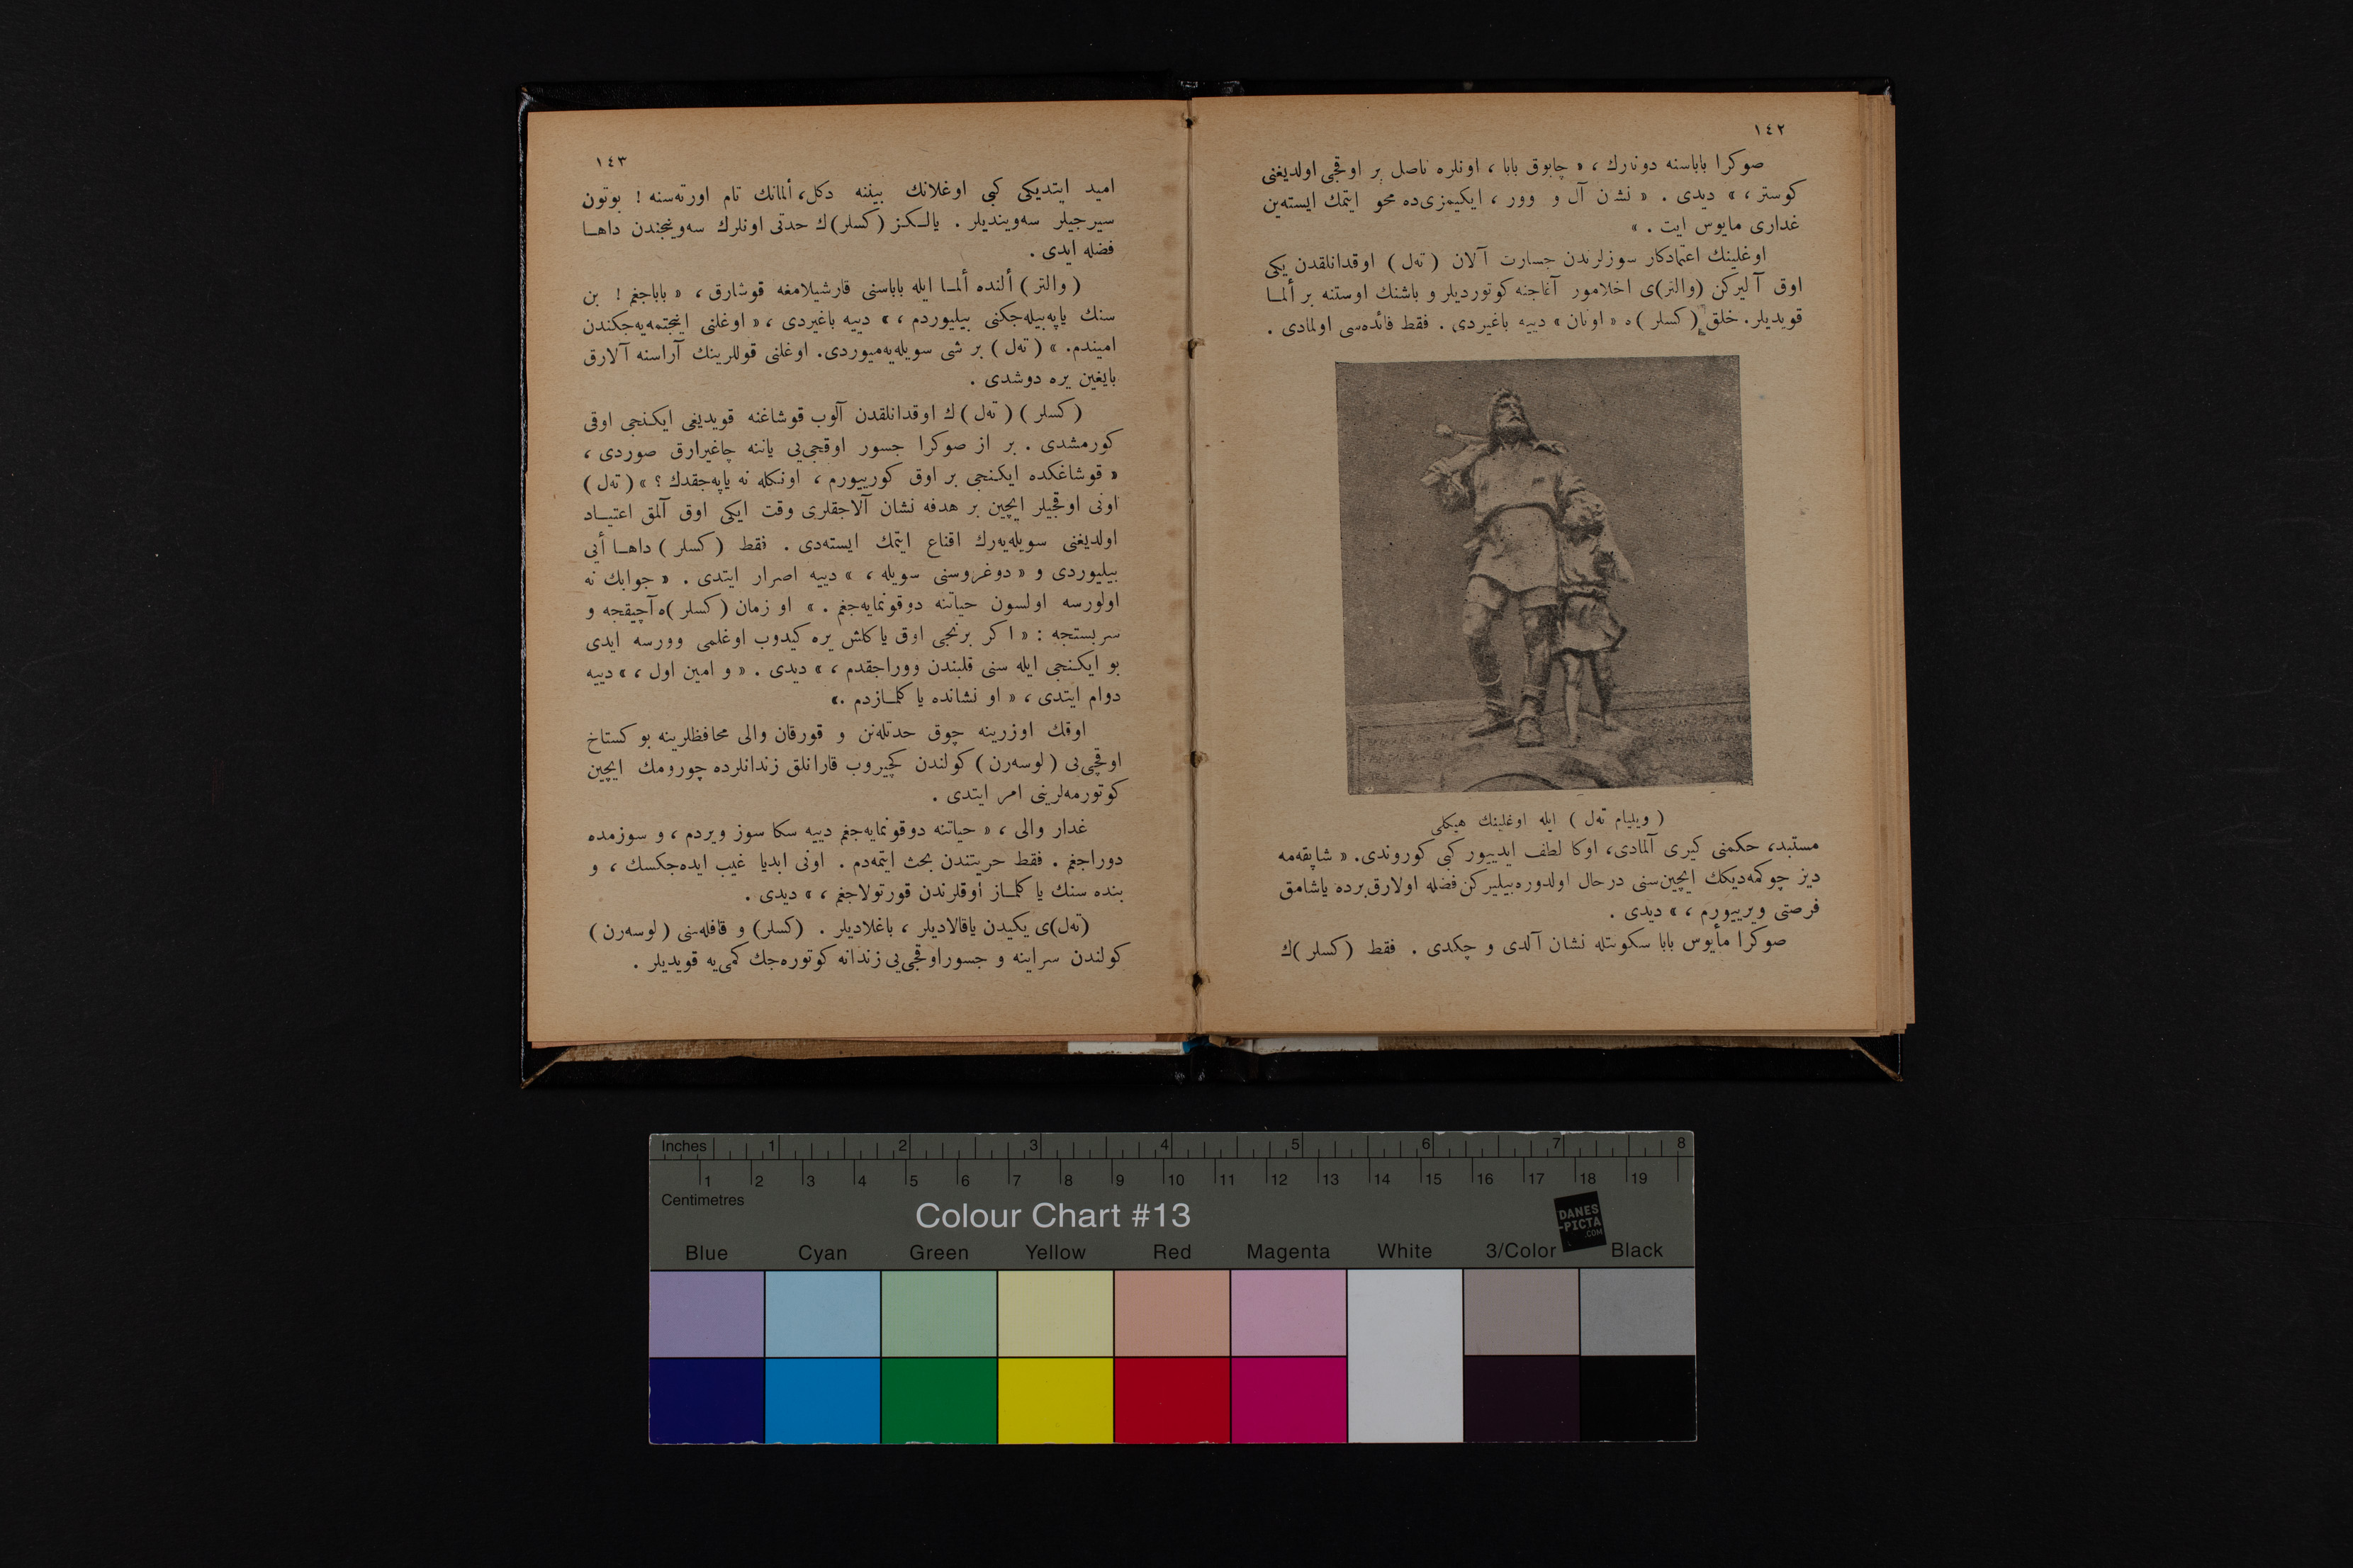 ١٤٢
صوكرا باباسنه دونارك ، « چابوق بابا ، اونلره ناصل بر اوقجی اولدیغنی
كوستر ، » دیدی . « نشان آل و وور ، ایكیمزی‌ده محو ایتمك ایسته‌ین
غداری مایوس ایت . »
اوغلینك اعتمادكار سوزلرندن جسارت آلان ( ته‌ل ) اوقدانلقدن یكی
اوق آلیركن (والتر)ی اخلامور آغاجنه كوتوردیلر و باشنك اوستنه بر ألما
قویدیلر . خلق (كسلر)ه « اوتان » دییه باغیردی . فقط فائده‌سی اولمادی .
( ویلیام ته‌ل ) ایله اوغلینك هیكلی
مستبد، حكمنی كیری آلمادی، اوكا لطف ایدییور كبی كوروندی. « شاپقه‌مه
دیز چوكمه‌دیكك ایچین سنی درحال اولدوره بیلیركن فضله اولارق برده یاشامق
فرصتی ویرییورم ، » دیدی .
صوكرا مأیوس بابا سكوتله نشان آلدی و چكدی . فقط (كسلر)ك
١٤٣
امید ایتدیكی كبی اوغلانك بیننه دكل، ألمانك تام اورته‌سنه ! بوتون
سیرجیلر سه‌ویندیلر . یالكز (كسلر)ك حدتی اونلرك سه‌وینجندن داها
فضله ایدی .
( والتر ) ألنده ألما ایله باباسنی قارشیلامغه قوشارق ، « باباجغم ! بن
سنك یاپه‌بیله‌جكنی بیلیوردم ، » دییه باغیردی ، « اوغلنی اینجتمه‌یه‌جكندن
امیندم. » ( ته‌ل ) بر شی سویله‌یه‌میوردی. اوغلنی قوللرینك آراسنه آلارق
بایغین یره دوشدی .
(كسلر) ( ته‌ل )ك اوقدانلقدن آلوب قوشاغنه قویدیغی ایكنجی اوقی
كورمشدی . بر از صوكرا جسور اوقجی‌یی یاننه چاغیرارق صوردی ،
« قوشاغكده ایكنجی بر اوق كورییورم ، اونكله نه یاپه‌جقدك ؟ » (ته‌ل )
اونی اوقجیلر ایچین بر هدفه نشان آلاجقلری وقت ایكی اوق آلمق اعتیاد
اولدیغنی سویله‌یه‌رك اقناع ایتمك ایسته‌دی . فقط (كسلر) داها أیی
بیلیوردی و « دوغروسنی سویله ، » دییه اصرار ایتدی . « جوابك نه
اولورسه اولسون حیاتنه دوقونمایه‌جغم . » او زمان (كسلر)ه آچیقجه و
سربستجه : « اكر برنجی اوق یاكلش یره كیدوب اوغلمی وورسه ایدی
بو ایكنجی ایله سنی قلبندن ووراجقدم ، » دیدی . « و امین اول ، » دییه
دوام ایتدی ، « او نشانده یاكلمازدم .»
اوقك اوزرینه چوق حدتله‌نن و قورقان والی محافظلرینه بو كستاخ
اوقچی‌یی (لوسه‌رن) كولندن كچیروب قارانلق زندانلرده چورومك ایچین
كوتورمه‌لرینی امر ایتدی .
غدار والی ، « حیاتنه دوقونمایه‌جغم دییه سكا سوز ویردم ، و سوزمده
دوراجغم . فقط حریتندن بحث ایتمه‌دم . اونی ابدیا غیب ایده‌جكسك ، و
بنده سنك یاكلماز أوقلرندن قورتولاجغم ، » دیدی .
(ته‌ل)ی یكیدن یاقالادیلر ، باغلادیلر . (كسلر) و قافله‌سنی (لوسه‌رن)
كولندن سراینه و جسور اوقجی‌یی زندانه كوتوره‌جك كمی‌یه قویدیلر .
Inches 1 2 3 4 5 6 7 8
1 2 3 4 5 6 7 8 9 10 11 12 13 14 15 16 17 18 19
Centimetres
Colour Chart #13
DANES
-PICTA
.COM
Blue Cyan Green Yellow Red Magenta White 3/Color Black